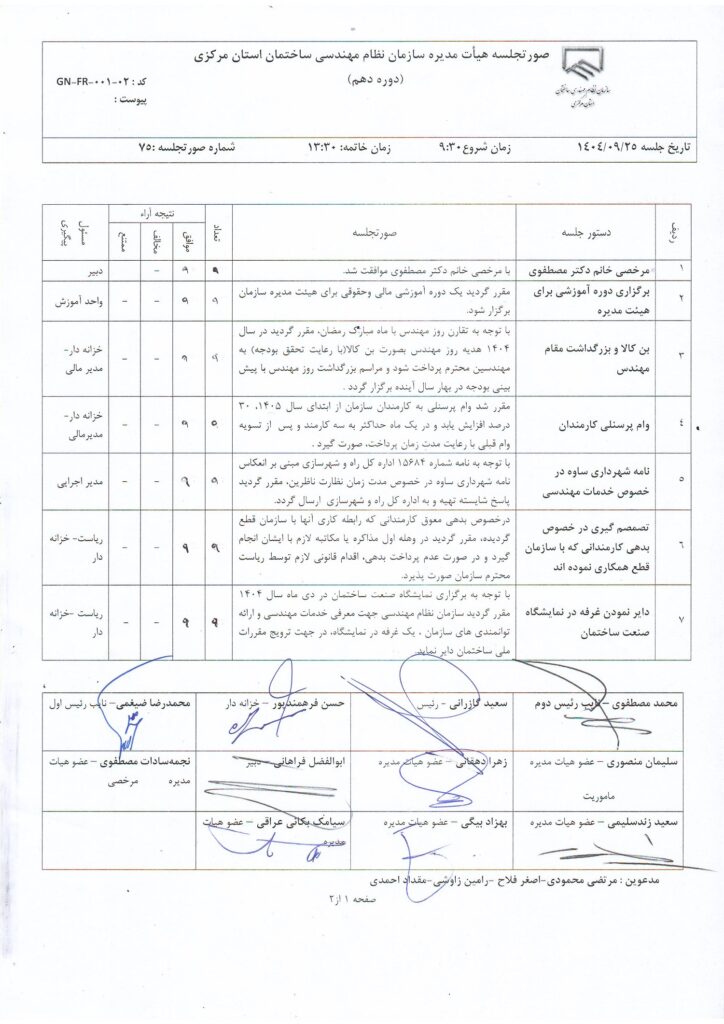 سازمان نظام مهندسی ساختمان
استان مرکزی
صورتجلسه هیأت مدیره سازمان نظام مهندسی ساختمان استان مرکزی
(دوره دهم)
کد : GN-FR-۰۰۱-۰۲
پیوست :
تاریخ جلسه ۱۴۰۴/۰۹/۲۵ زمان شروع ۹:۳۰ زمان خاتمه: ۱۳:۳۰ شماره صورتجلسه :۷۵
ردیف دستور جلسه صورتجلسه تعداد نتیجه آراء مسئول پیگیری
موافق مخالف ممتنع
۱ مرخصی خانم دکتر مصطفوی با مرخصی خانم دکتر مصطفوی موافقت شد. ۹ ۹ - دبیر
۲ برگزاری دوره آموزشی برای هیئت مدیره
مقرر گردید یک دوره آموزشی مالی وحقوقی برای هیئت مدیره سازمان
برگزار شود.
۹ ۹ - - واحد آموزش
۳ بن کالا و بزرگداشت مقام مهندس
با توجه به تقارن روز مهندس با ماه مبارک رمضان، مقرر گردید در سال
۱۴۰۴ هدیه روز مهندس بصورت بن کالا(با رعایت تحقق بودجه) به
مهندسین محترم پرداخت شود و مراسم بزرگداشت روز مهندس با پیش
بینی بودجه در بهار سال آینده برگزار گردد .
۹ ۹ - - خزانه دار- مدیر مالی
۴ وام پرسنلی کارمندان
مقرر شد وام پرسنلی به کارمندان سازمان از ابتدای سال ۱۴۰۵، ۳۰
درصد افزایش یابد و در یک ماه حداکثر به سه کارمند و پس از تسویه
وام قبلی با رعایت مدت زمان پرداخت، صورت گیرد .
۹ ۹ - - خزانه دار- مدیرمالی
۵ نامه شهرداری ساوه در خصوص خدمات مهندسی
با توجه به نامه شماره ۱۵۶۸۴ اداره کل راه و شهرسازی مبنی بر انعکاس
نامه شهرداری ساوه در خصوص مدت زمان نظارت ناظرین، مقرر گردید
پاسخ شایسته تهیه و به اداره کل راه و شهرسازی ارسال گردد.
۹ ۹ - - مدیر اجرایی
۶ تصمصم گیری در خصوص بدهی کارمندانی که با سازمان قطع همکاری نموده اند
درخصوص بدهی معوق کارمندانی که رابطه کاری آنها با سازمان قطع
گردیده، مقرر گردید در وهله اول مذاکره یا مکاتبه لازم با ایشان انجام
گیرد و در صورت عدم پرداخت بدهی، اقدام قانونی لازم توسط ریاست
محترم سازمان صورت پذیرد.
۹ ۹ - - ریاست- خزانه دار
۷ دایر نمودن غرفه در نمایشگاه صنعت ساختمان
با توجه به برگزاری نمایشگاه صنعت ساختمان در دی ماه سال ۱۴۰۴
مقرر گردید سازمان نظام مهندسی جهت معرفی خدمات مهندسی و ارائه
توانمندی های سازمان ، یک غرفه در نمایشگاه، در جهت ترویج مقررات
ملی ساختمان دایر نماید.
۹ ۹ - - ریاست -خزانه دار
محمد مصطفوی – نایب رئیس دوم
سعید گازرانی - رئیس
حسن فرهمندپور – خزانه دار
محمدرضا ضیغمی– نایب رئیس اول
سلیمان منصوری – عضو هیات مدیره
ماموریت
زهرا دهقانی – عضو هیات مدیره
ابوالفضل فراهانی– دبیر
نجمه‌سادات مصطفوی – عضو هیات
مدیره مرخصی
سعید زندسلیمی – عضو هیات مدیره
بهزاد بیگی – عضو هیات مدیره
سیامک یکائی عراقی – عضو هیات
مدیره
مدعوین : مرتضی محمودی-اصغر فلاح -رامین زاوشی-مقداد احمدی
صفحه ۱ از۲